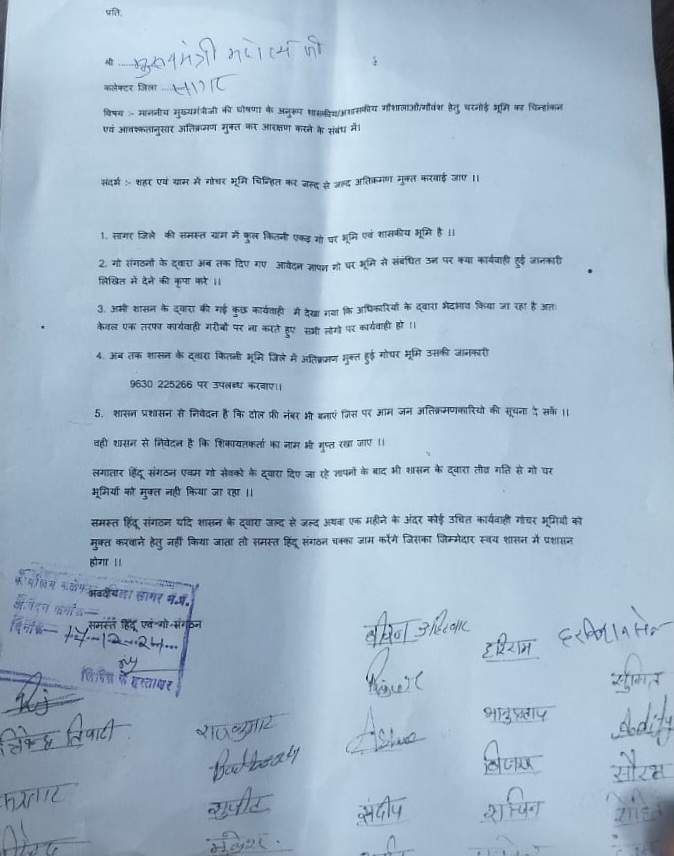 प्रति,
श्री ......मुख्यमंत्री महोदय जी
कलेक्टर जिला ....सागर
विषय :- माननीय मुख्यमंत्रीजी की घोषणा के अनुरूप शासकीय/अशासकीय गौशालाओ/गौवंश हेतु चरनोई भूमि का चिन्हांकन
एवं आवश्कतानुसार अतिक्रमण मुक्त कर आरक्षण करने के संबंध में।
संदर्भ :- शहर एवं ग्राम में गोचर भूमि चिन्हित कर जल्द से जल्द अतिक्रमण मुक्त करवाई जाए ।।
1. सागर जिले की समस्त ग्राम में कुल कितनी एकड़ गो चर भूमि एवं शासकीय भूमि है ।।
2. गो संगठनों के द्वारा अब तक दिए गए आवेदन ज्ञापन गो चर भूमि से संबंधित उन पर क्या कार्यवाही हुई जानकारी
लिखित में देने की कृपा करे ।।
3. अभी शासन के द्वारा की गई कुछ कार्यवाही में देखा गया कि अधिकारियों के द्वारा भेदभाव किया जा रहा है अतः
केवल एक तरफा कार्यवाही गरीबों पर ना करते हुए सभी लोगो पर कार्यवाही हो ।।
4. अब तक शासन के द्वारा कितनी भूमि जिले में अतिक्रमण मुक्त हुई गोचर भूमि उसकी जानकारी
9630 225266 पर उपलब्ध करवाए।।
5. शासन प्रशासन से निवेदन है कि टोल फ्री नंबर भी बनाएं जिस पर आम जन अतिक्रमणकारियो की सूचना दे सकें ।।
वही शासन से निवेदन है कि शिकायतकर्ता का नाम भी गुप्त रखा जाए ।।
लगातार हिंदू संगठन एवम गो सेवको के द्वारा दिए जा रहे ज्ञापनों के बाद भी शासन के द्वारा तीव्र गति से गो चर
भूमियों को मुक्त नही किया जा रहा ।।
समस्त हिंदू संगठन यदि शासन के द्वारा जल्द से जल्द अथवा एक महीने के अंदर कोई उचित कार्यवाही गोचर भूमियों को
मुक्त करवाने हेतु नहीं किया जाता तो समस्त हिंदू संगठन चक्का जाम करेंगे जिसका जिम्मेदार स्वय शासन में प्रशासन
होगा ।।
सागर म.प्र.
आवेदन क्रमांक
समस्त हिंदू एवं गो संगठन
दिनांक 17-12-24...
लिपिक के हस्ताक्षर
बीपिन अहिरवार हरिराम
सुमित
त्रिपाठी राजकुमार भानुप्रताप
विजय सौरभ
करतार सुजीत संदीप सचिन
मुकेश